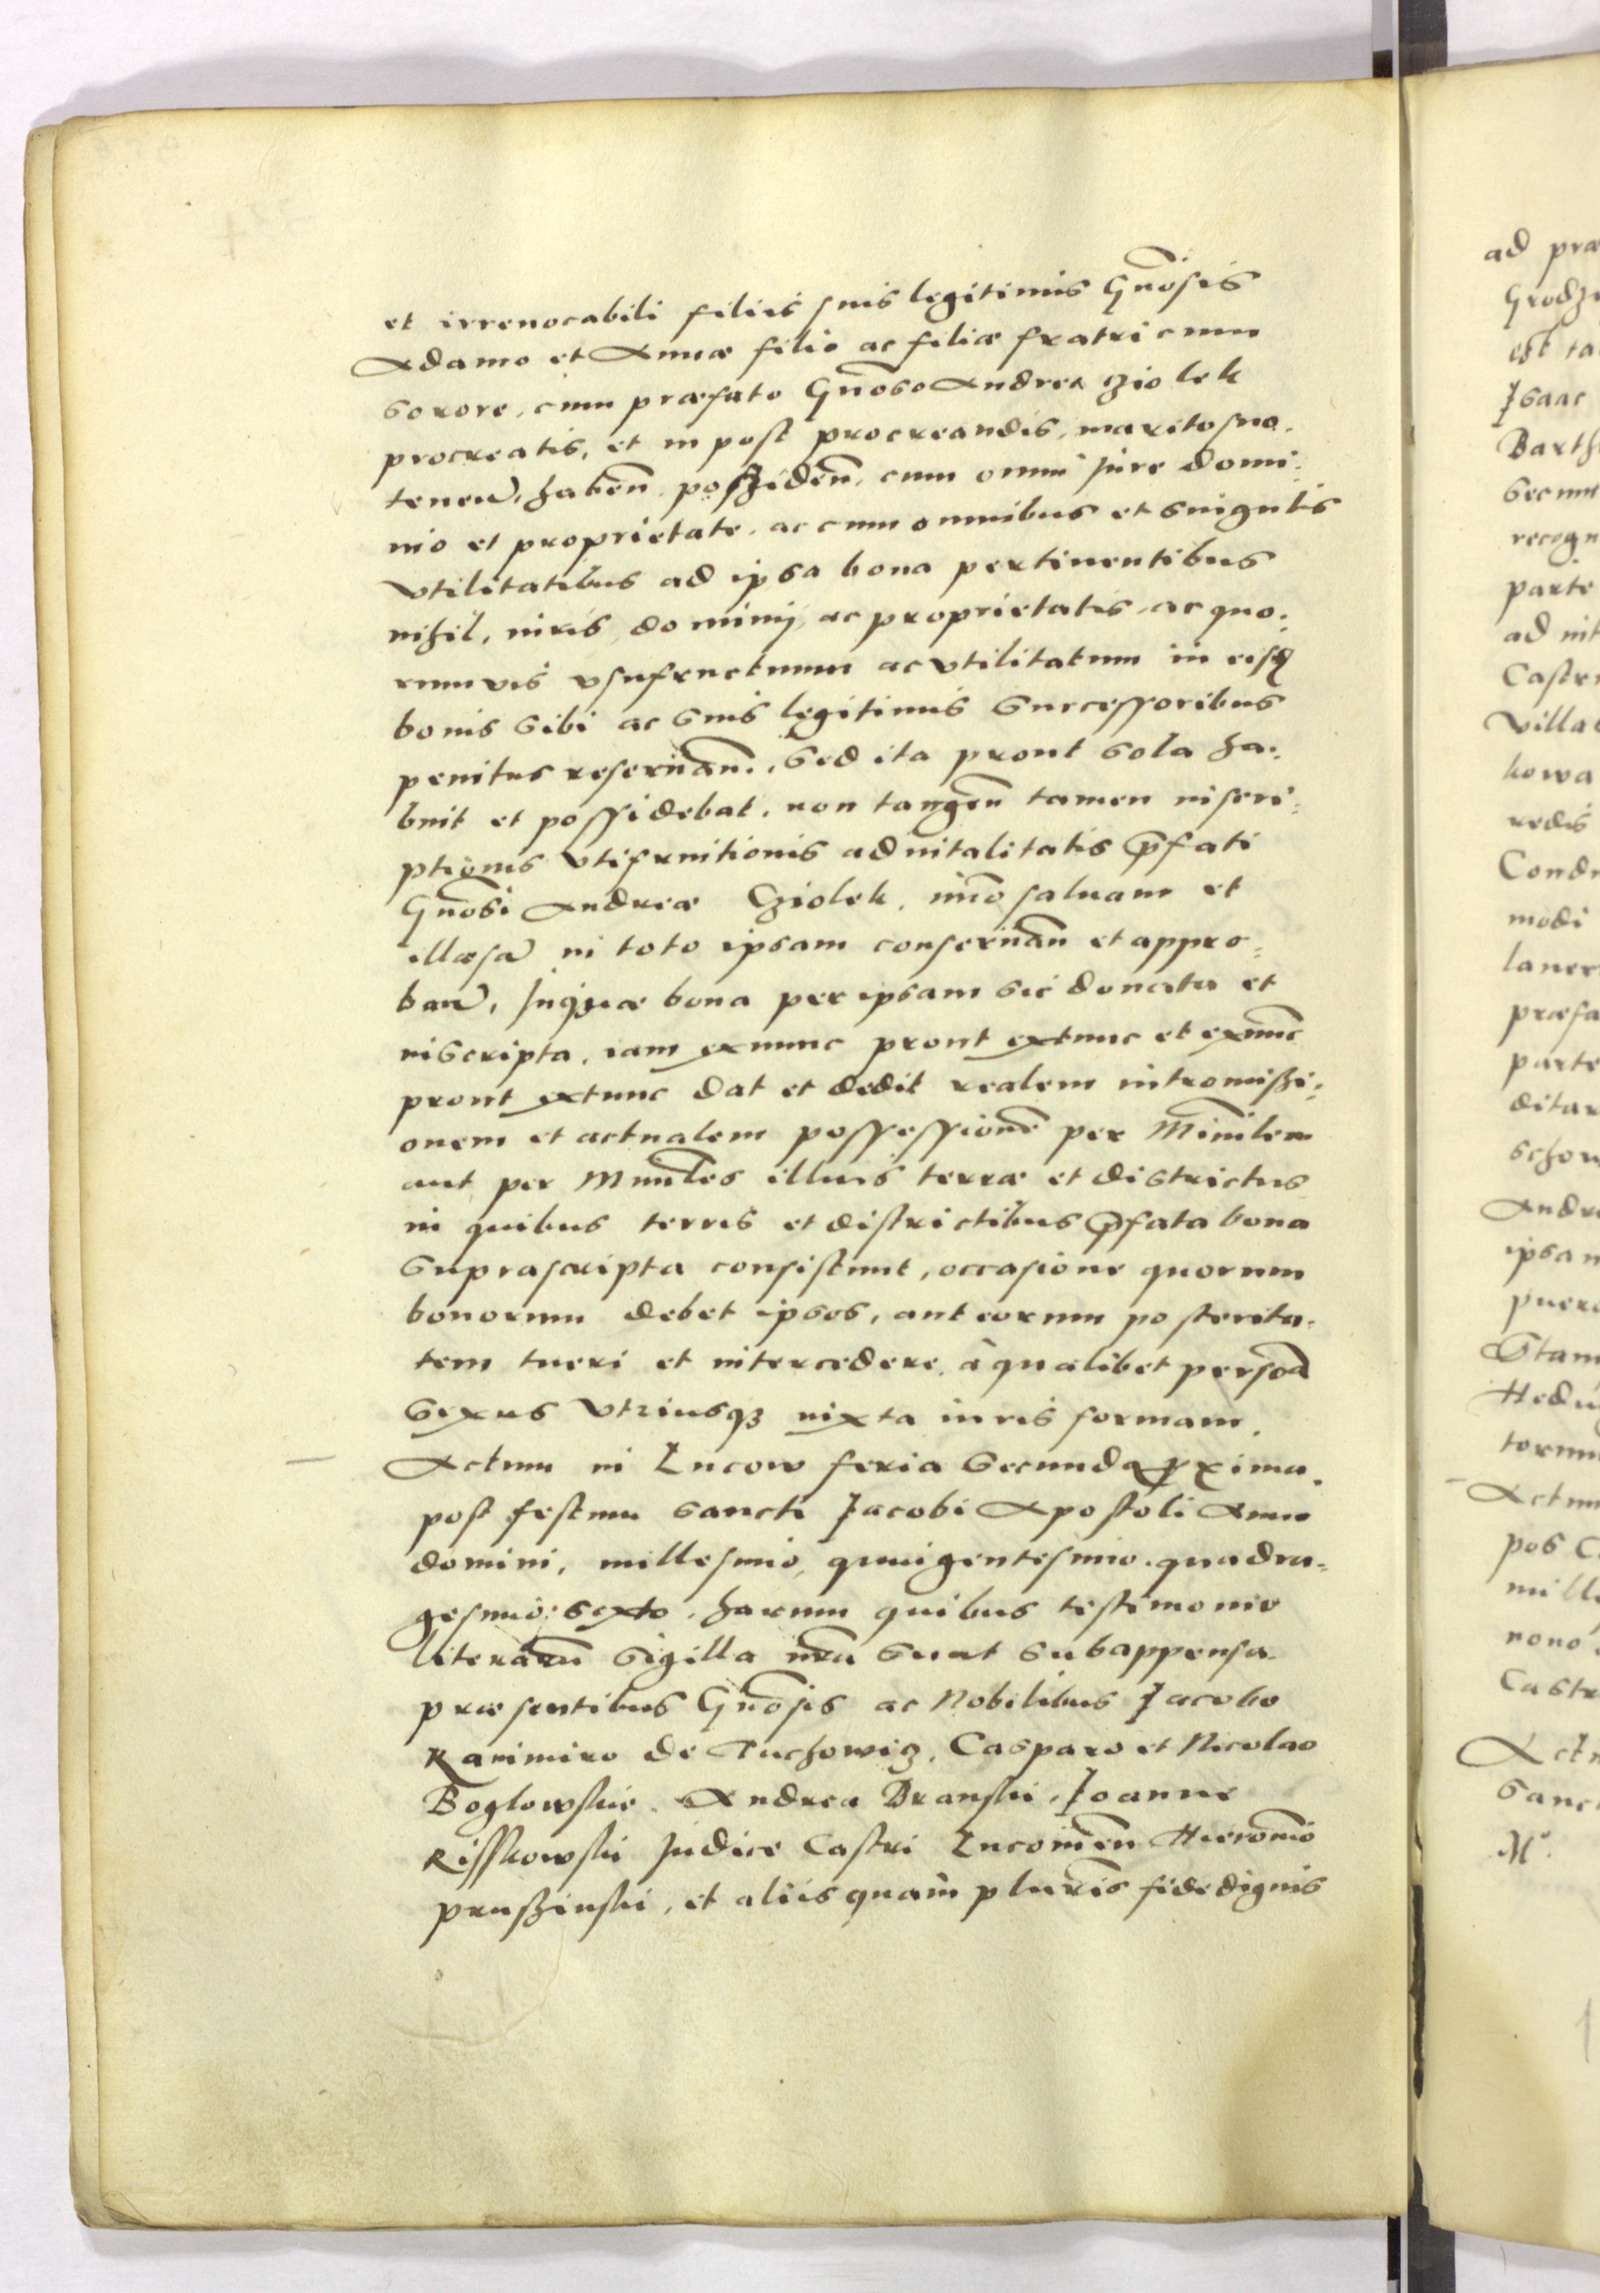 et irrevocabili filiis suis legitimis Gnosis
Adamo et Annæ filio ac filiæ fratri cum
sorore, cum præfato Gnoso Andrea Cziolek
procreatis, et in post procreandis, marito suo.
tenen, haben, possiden, cum omni jure domi:
nio et proprietate, ac cum omnibus et singulis
vtilitatibus ad ipsa bona pertinentibus
nihil, iuris, dominij, ac proprietatis, ac quo:
rumvis vsufructuum ac vtilitatum in eisd
bonis sibi ac suis legitimis successoribus
penitus reservan., sed ita prout sola ha:
buit et possidebat, non tangen tamen inscri:
ptionis vtifruitionis advitalitatis pfati
Gnosi Andreæ Cziolek, imo salvam et
illæsa in toto ipsam conservan et appro:
ban, Inquæ bona per ipsam sic donata et
inscripta, iam exnunc prout extunc et exnunc
prout extunc dat et dedit realem intromissi:
onem et actualem possessione per Minilem
aut per Minles illius terræ et districtus
in quibus terris et districtibus pfata bona
suprascripta consistunt, occasione quorum
bonorum debet ipsos, aut eorum posterita:
tem tueri et intercedere, à qualibet persoa
sexus vtriusq iuxta iuris formam.
Actum in Lucow feria secunda pxima
post festum sancti Jacobi Apostoli Anno
domini, millesimo, quingentesimo. quadra:
gesimo: sexto, harum quibus testimonio
literaru sigilla nra sunt subappensa.
præsentibus Gnosis ac Nobilibus Jacobo
Kazimiro de Tuchowicz, Casparo et Nicolao
Boglowskie. Andrea Branski, Joanne
Kisskowski Judice Castri Lucovien Hieronimo
Pruszinski, et aliis quam pluris fidedignis
ad præ
Grodzi
est ta
Isaac
Barth
secun
recogn
parte
ad uit
Castr
villa
kowa
redis
Cond
modi
laner
præfa
parte
ditar
schow
Andre
ipsam
puer
Stani
Hedu
torum
Actum
pos C
mill
nono
Castr
Actu
Sanc
M.